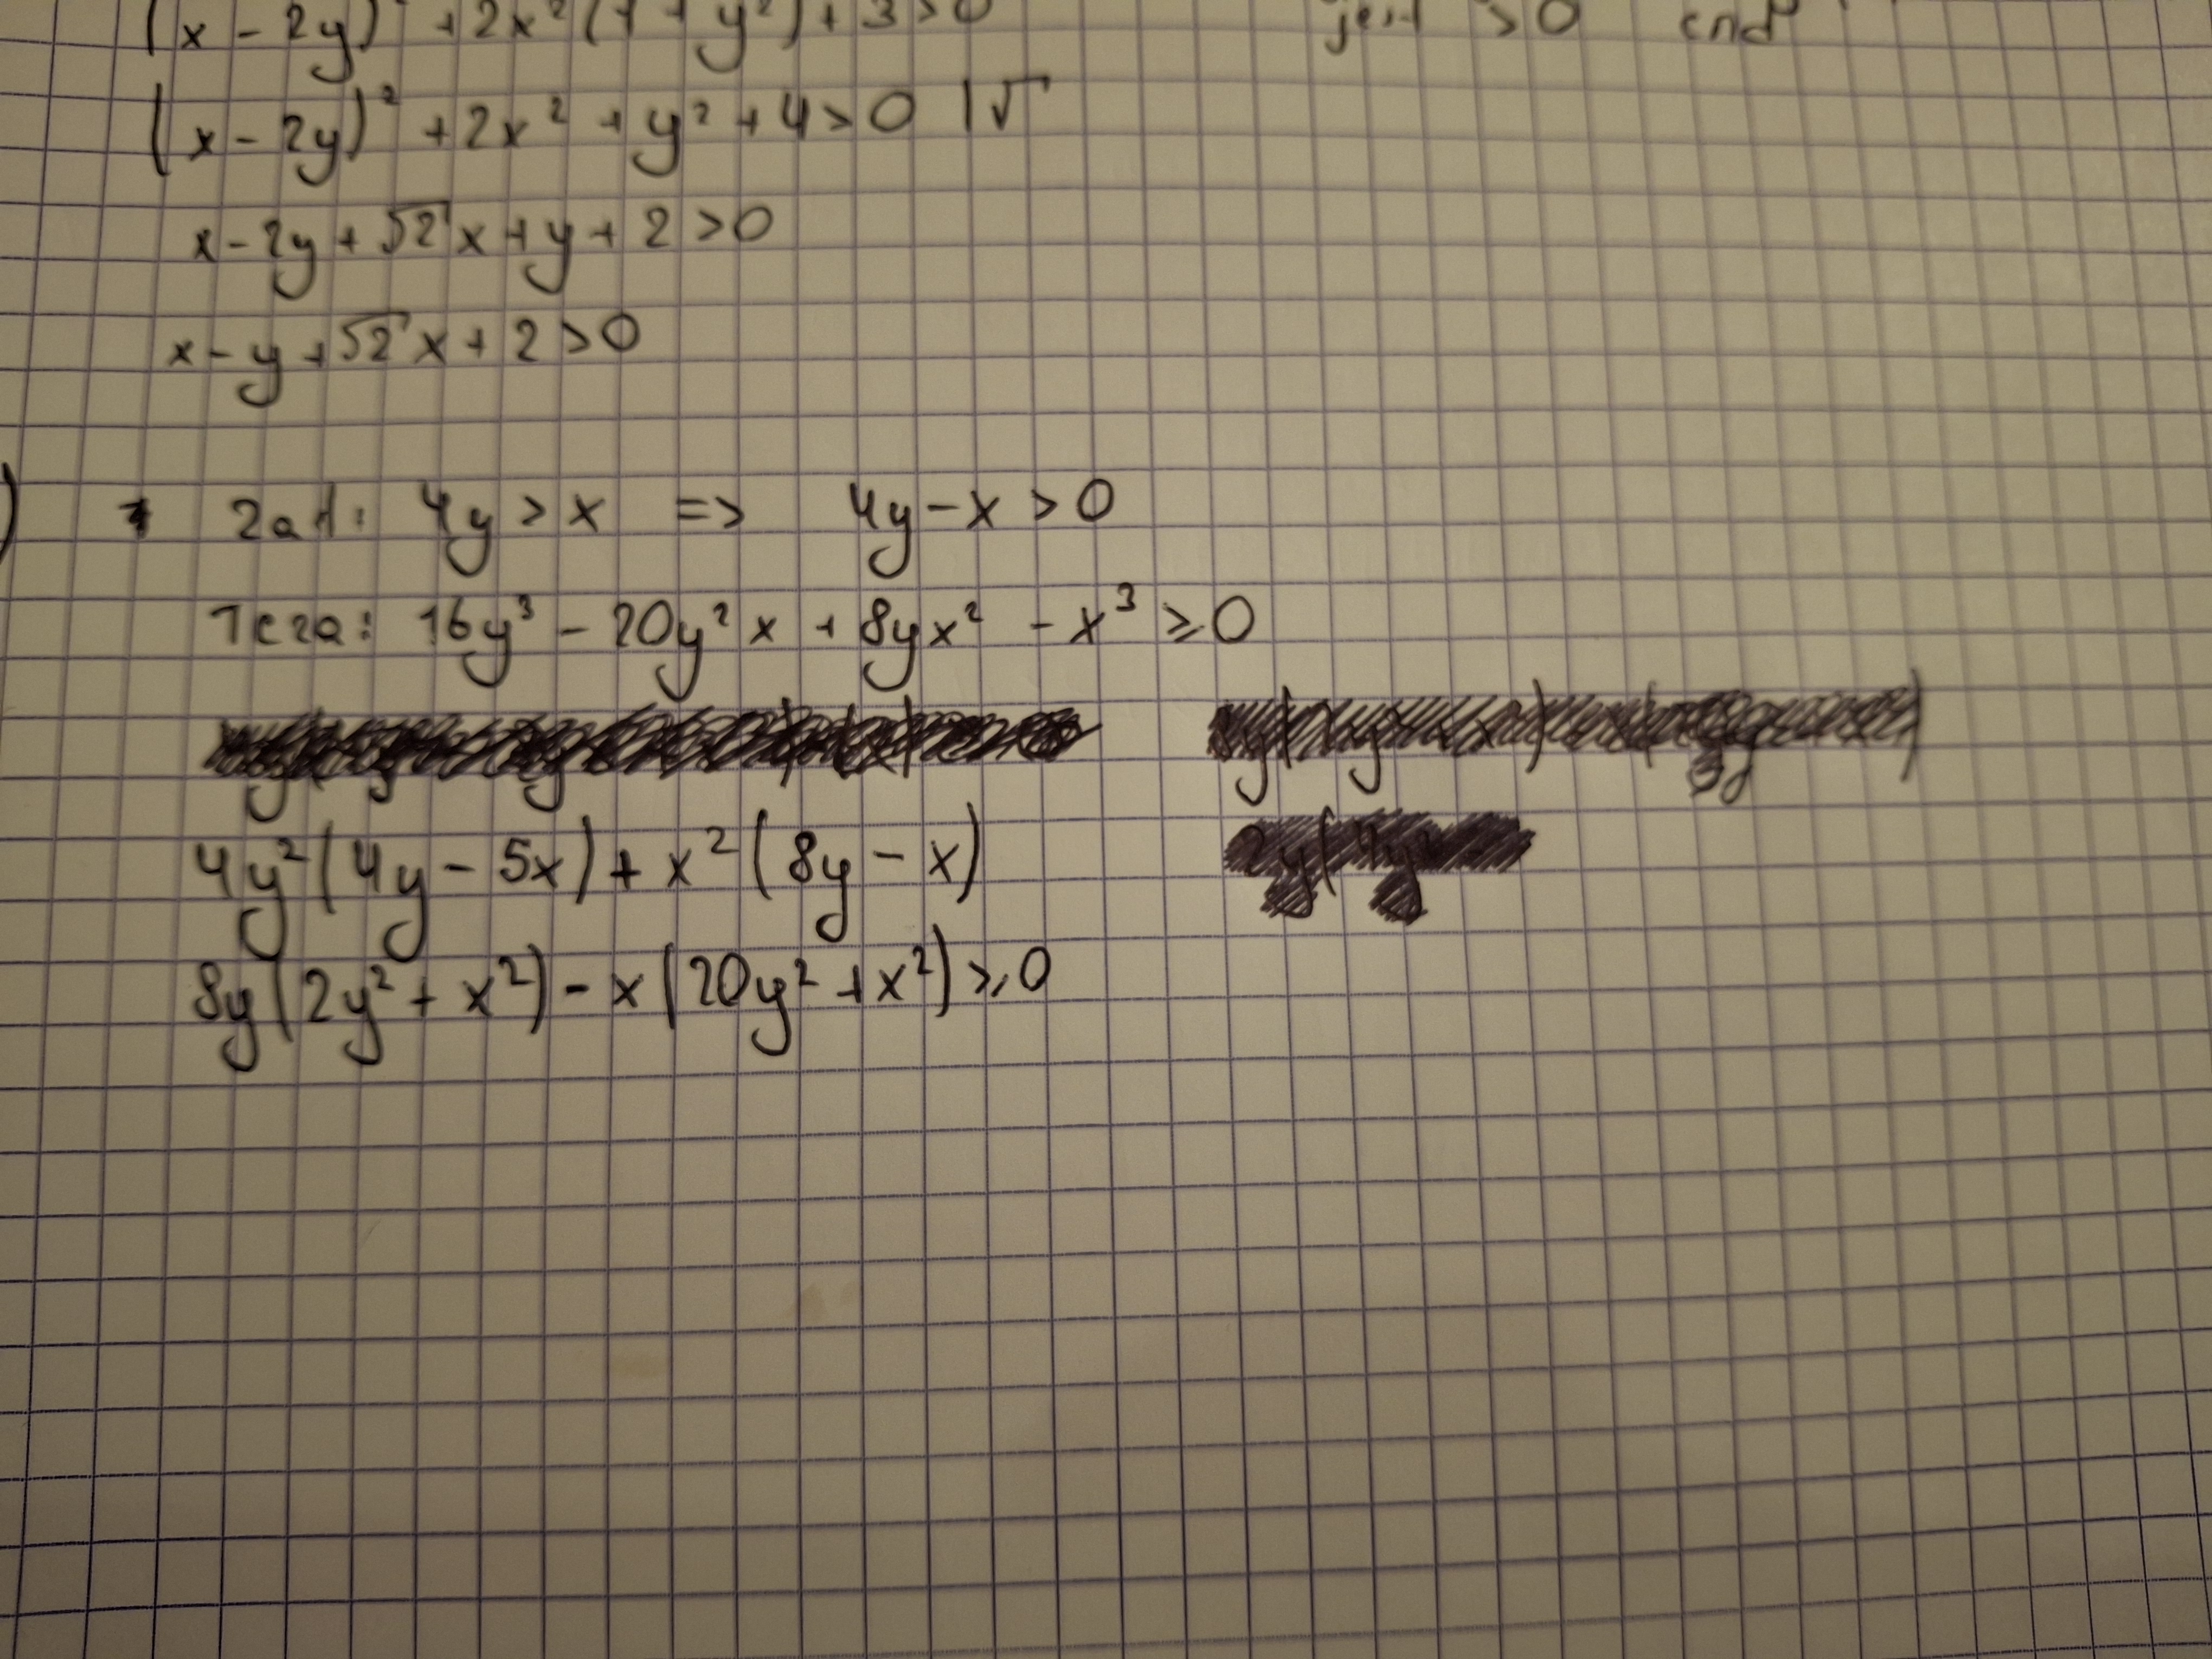 (x - 2y)² + 2x² (1 + y²) + 3 > 0 jest > 0 cnd
(x - 2y)² + 2x² + y² + 4 > 0 |√
x - 2y + √2 x + y + 2 > 0
x - y + √2 x + 2 > 0
Zał: 4y > x => 4y - x > 0
Teza: 16y³ - 20y²x + 8yx² - x³ ≥ 0
4y² (4y - 5x) + x² (8y - x)
8y (2y² + x²) - x (20y² + x²) ≥ 0